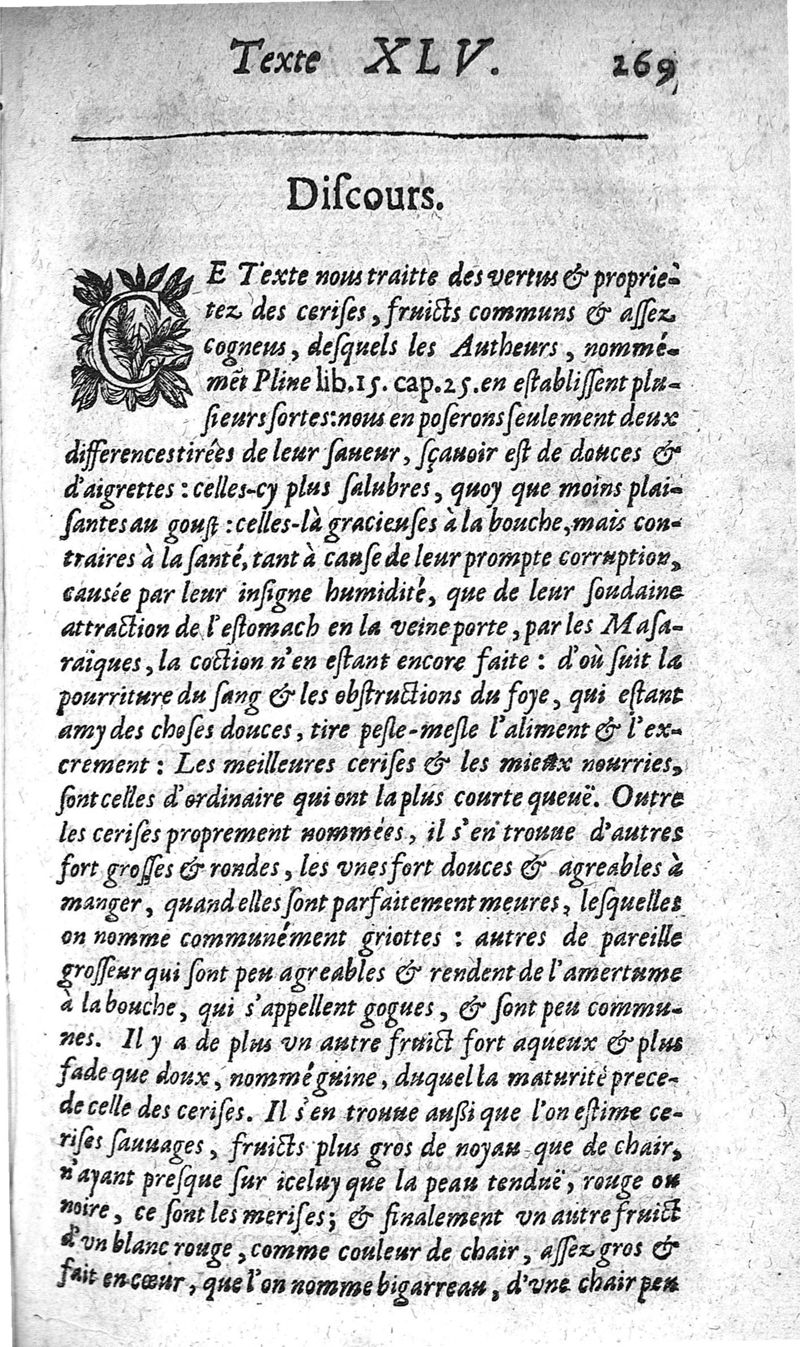 Texte XLV. 269
Diſcours.
CE Texte nous traitte des vertus & proprie-
tez des ceriſes, fruicts communs & aſſez
cogneus, deſquels les Autheurs, nommé-
mēt Pline lib.15. cap.25. en eſtabliſſent plu-
ſieurs ſortes: nous en poſerons ſeulement deux
differences tirées de leur ſaueur, ſçauoir eſt de douces &
d'aigrettes : celles-cy plus ſalubres, quoy que moins plai-
ſantes au gouſt : celles-là gracieuſes à la bouche, mais con-
traires à la ſanté, tant à cauſe de leur prompte corruption,
cauſée par leur inſigne humidité, que de leur ſoudaine
attraction de l'eſtomach en la veine porte, par les Maſa-
raïques, la coction n'en eſtant encore faite : d'où ſuit la
pourriture du ſang & les obſtructions du foye, qui eſtant
amy des choſes douces, tire peſle-meſle l'aliment & l'ex-
crement : Les meilleures ceriſes & les mieux nourries,
ſont celles d'ordinaire qui ont la plus courte queuë. Outre
les ceriſes proprement nommées, il s'en trouue d'autres
fort groſſes & rondes, les vnes fort douces & agreables à
manger, quand elles ſont parfaitement meures, leſquelles
on nomme communément griottes : autres de pareille
groſſeur qui ſont peu agreables & rendent de l'amertume
à la bouche, qui s'appellent gogues, & ſont peu commu-
nes. Il y a de plus vn autre fruict fort aqueux & plus
fade que doux, nommé guine, duquel la maturité prece-
de celle des ceriſes. Il s'en trouue außi que l'on eſtime ce-
riſes ſauuages, fruicts plus gros de noyau que de chair,
n'ayant preſque ſur iceluy que la peau tenduë, rouge ou
noire, ce ſont les meriſes; & finalement vn autre fruict
d'vn blanc rouge, comme couleur de chair, aſſez gros &
fait en cœur, que l'on nomme bigarreau, d'vne chair peu